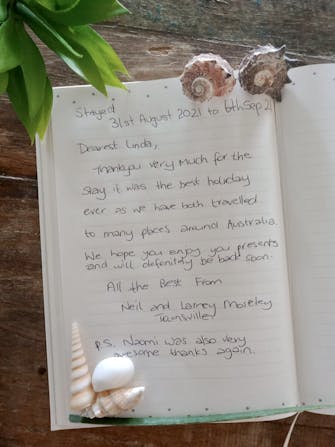 Stayed
31st August 2021 to 6th Sep 21
Dearest Linda,
Thankyou very much for the
stay it was the best holiday
ever as we have both travelled
to many places around Australia.
We hope you enjoy you presents
and will definitely be back soon.
All the Best From
Neil and Larney Moreley
Townsville
P.S. Naomi was also very
awesome thanks again.